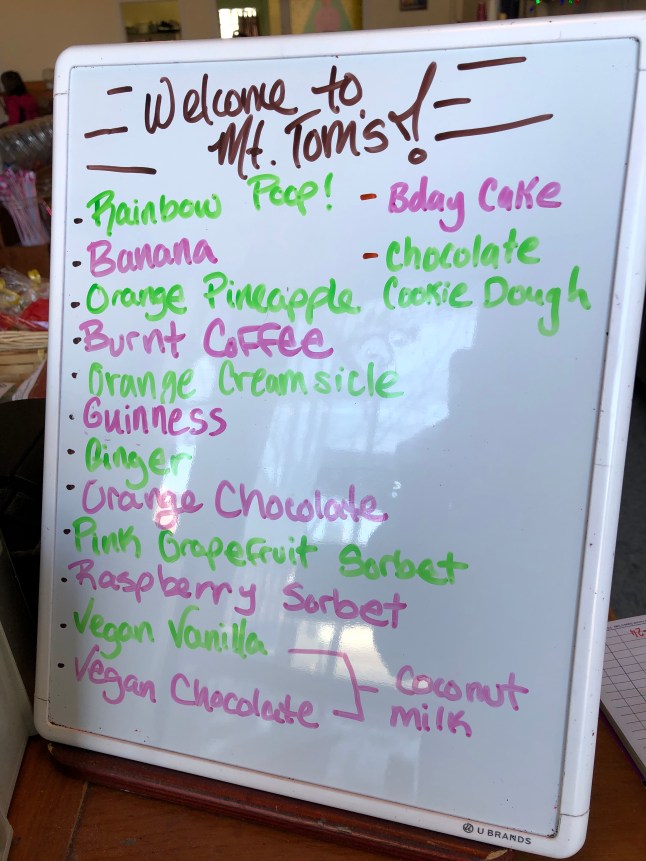 Welcome to
Mt. Tom's!
Rainbow Poop!
Banana
Orange Pineapple
Burnt Coffee
Orange Creamsicle
Guinness
Ginger
Orange Chocolate
Pink Grapefruit Sorbet
Raspberry Sorbet
Vegan Vanilla
Vegan Chocolate
Coconut
milk
- Bday Cake
- Chocolate
Cookie Dough
U BRANDS